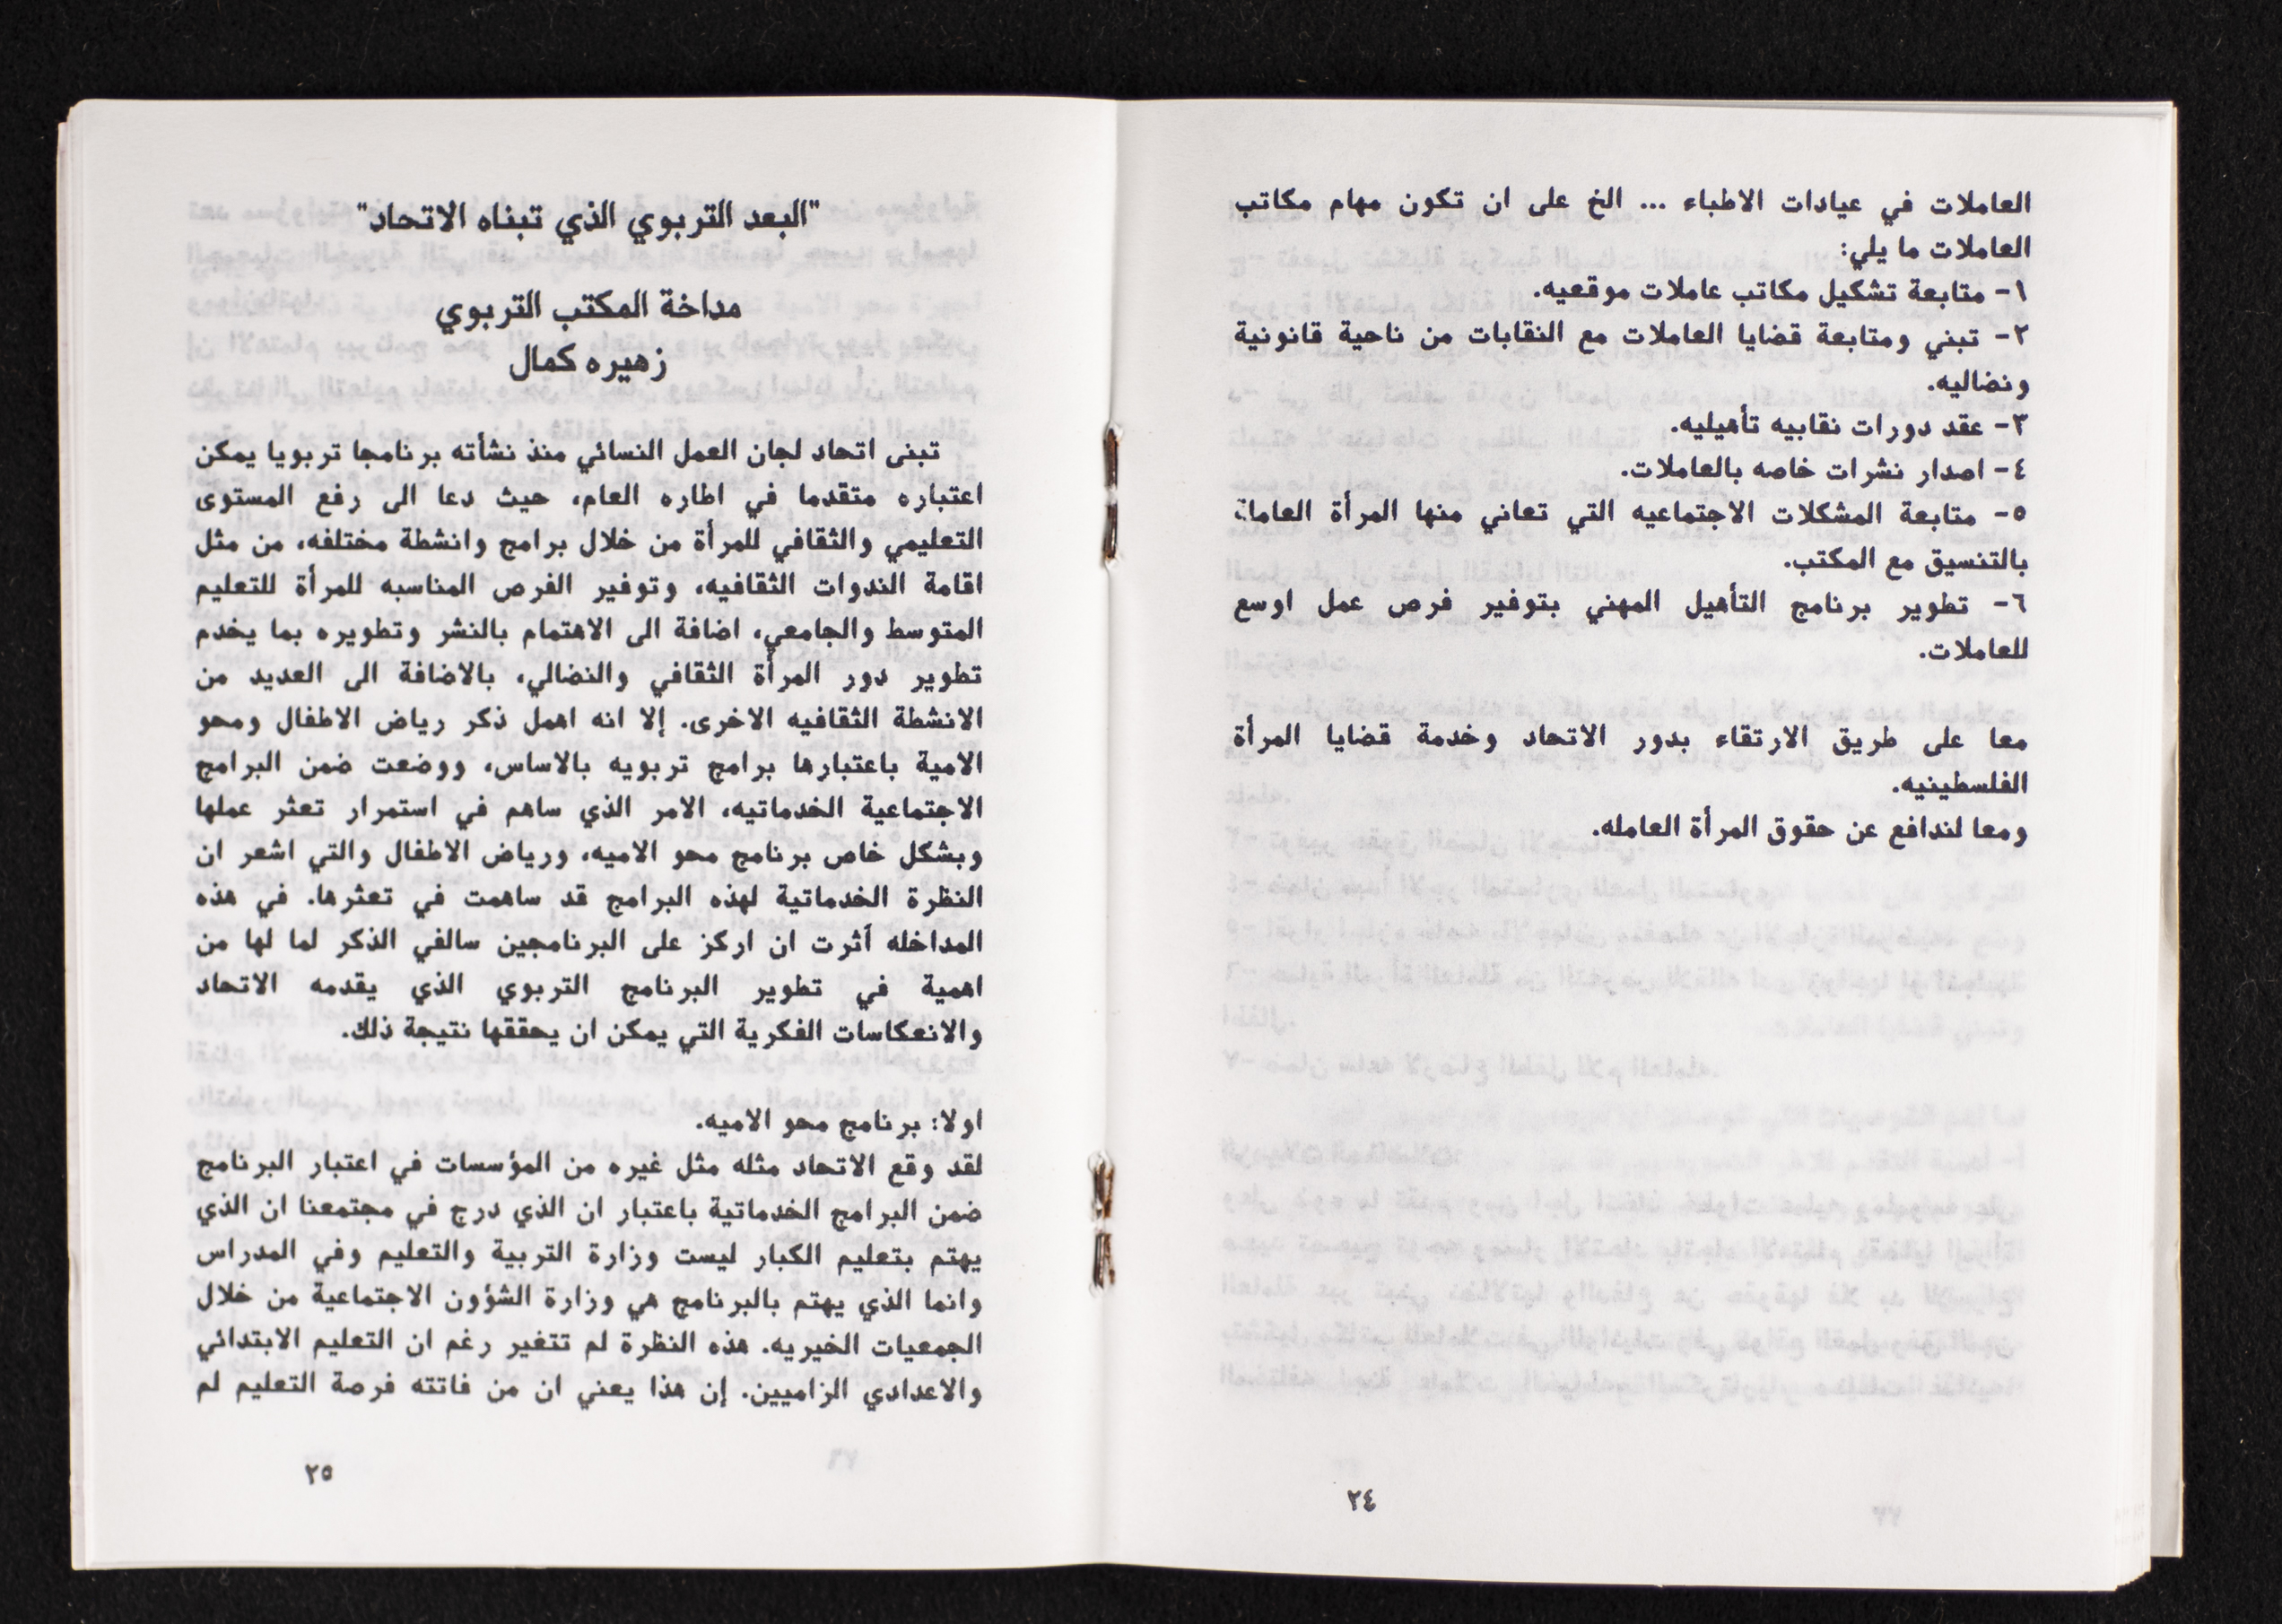 العاملات في عيادات الاطباء ... الخ على ان تكون مهام مكاتب
العاملات ما يلي:
١- متابعة تشكيل مكاتب عاملات موقعيه.
٢- تبني ومتابعة قضايا العاملات مع النقابات من ناحية قانونية
ونضاليه.
٣- عقد دورات نقابيه تأهيليه.
٤- اصدار نشرات خاصه بالعاملات.
٥- متابعة المشكلات الاجتماعيه التي تعاني منها المرأة العاملة
بالتنسيق مع المكتب.
٦- تطوير برنامج التأهيل المهني بتوفير فرص عمل اوسع
للعاملات.
معا على طريق الارتقاء بدور الاتحاد وخدمة قضايا المرأة
الفلسطينيه.
ومعا لندافع عن حقوق المرأة العامله.
٢٤
"البعد التربوي الذي تبناه الاتحاد"
مداخة المكتب التربوي
زهيره كمال
تبنى اتحاد لجان العمل النسائي منذ نشأته برنامجا تربويا يمكن
اعتباره متقدما في اطاره العام، حيث دعا الى رفع المستوى
التعليمي والثقافي للمرأة من خلال برامج وانشطة مختلفه، من مثل
اقامة الندوات الثقافيه، وتوفير الفرص المناسبه للمرأة للتعليم
المتوسط والجامعي، اضافة الى الاهتمام بالنشر وتطويره بما يخدم
تطوير دور المرأة الثقافي والنضالي، بالاضافة الى العديد من
الانشطة الثقافيه الاخرى. إلا انه اهمل ذكر رياض الاطفال ومحو
الامية باعتبارها برامج تربويه بالاساس، ووضعت ضمن البرامج
الاجتماعية الخدماتيه، الامر الذي ساهم في استمرار تعثر عملها
وبشكل خاص برنامج محو الاميه، ورياض الاطفال والتي اشعر ان
النظرة الخدماتية لهذه البرامج قد ساهمت في تعثرها. في هذه
المداخله أثرت ان اركز على البرنامجين سالفي الذكر لما لها من
اهمية في تطوير البرنامج التربوي الذي يقدمه الاتحاد
والانعكاسات الفكرية التي يمكن ان يحققها نتيجة ذلك.
اولا: برنامج محو الاميه.
لقد وقع الاتحاد مثله مثل غيره من المؤسسات في اعتبار البرنامج
ضمن البرامج الخدماتية باعتبار ان الذي درج في مجتمعنا ان الذي
يهتم بتعليم الكبار ليست وزارة التربية والتعليم وفي المدراس
وانما الذي يهتم بالبرنامج هي وزارة الشؤون الاجتماعية من خلال
الجمعيات الخيريه. هذه النظرة لم تتغير رغم ان التعليم الابتدائي
والاعدادي الزاميين. إن هذا يعني ان من فاتته فرصة التعليم لم
٢٥